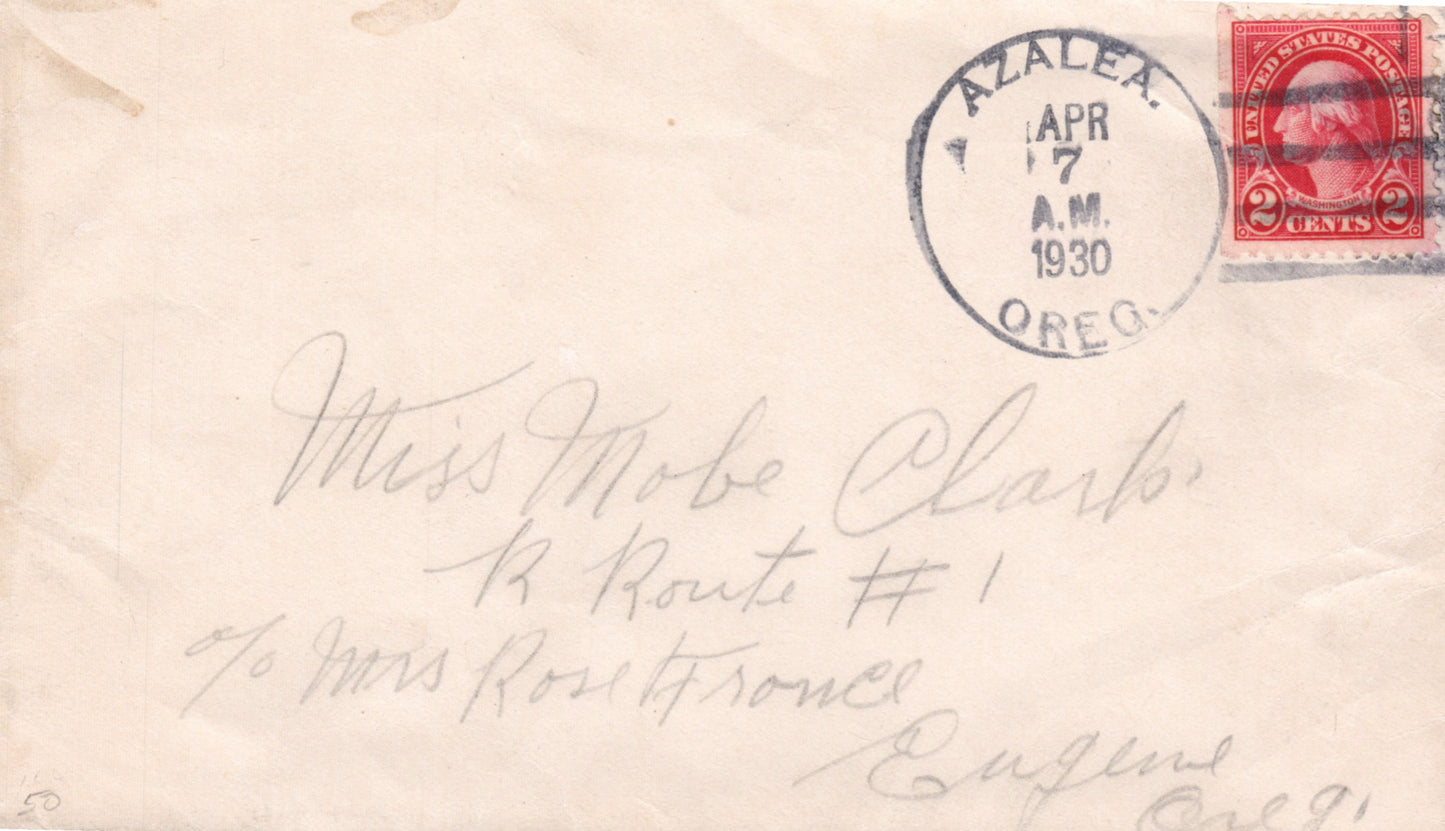 AZALEA.
APR
7
A.M.
1930
OREG.
UNITED STATES POSTAGE
WASHINGTON
2 CENTS 2
Miss Mobe Clark
R Route # 1
c/o Mrs Rose France
Eugene
Oreg.
50